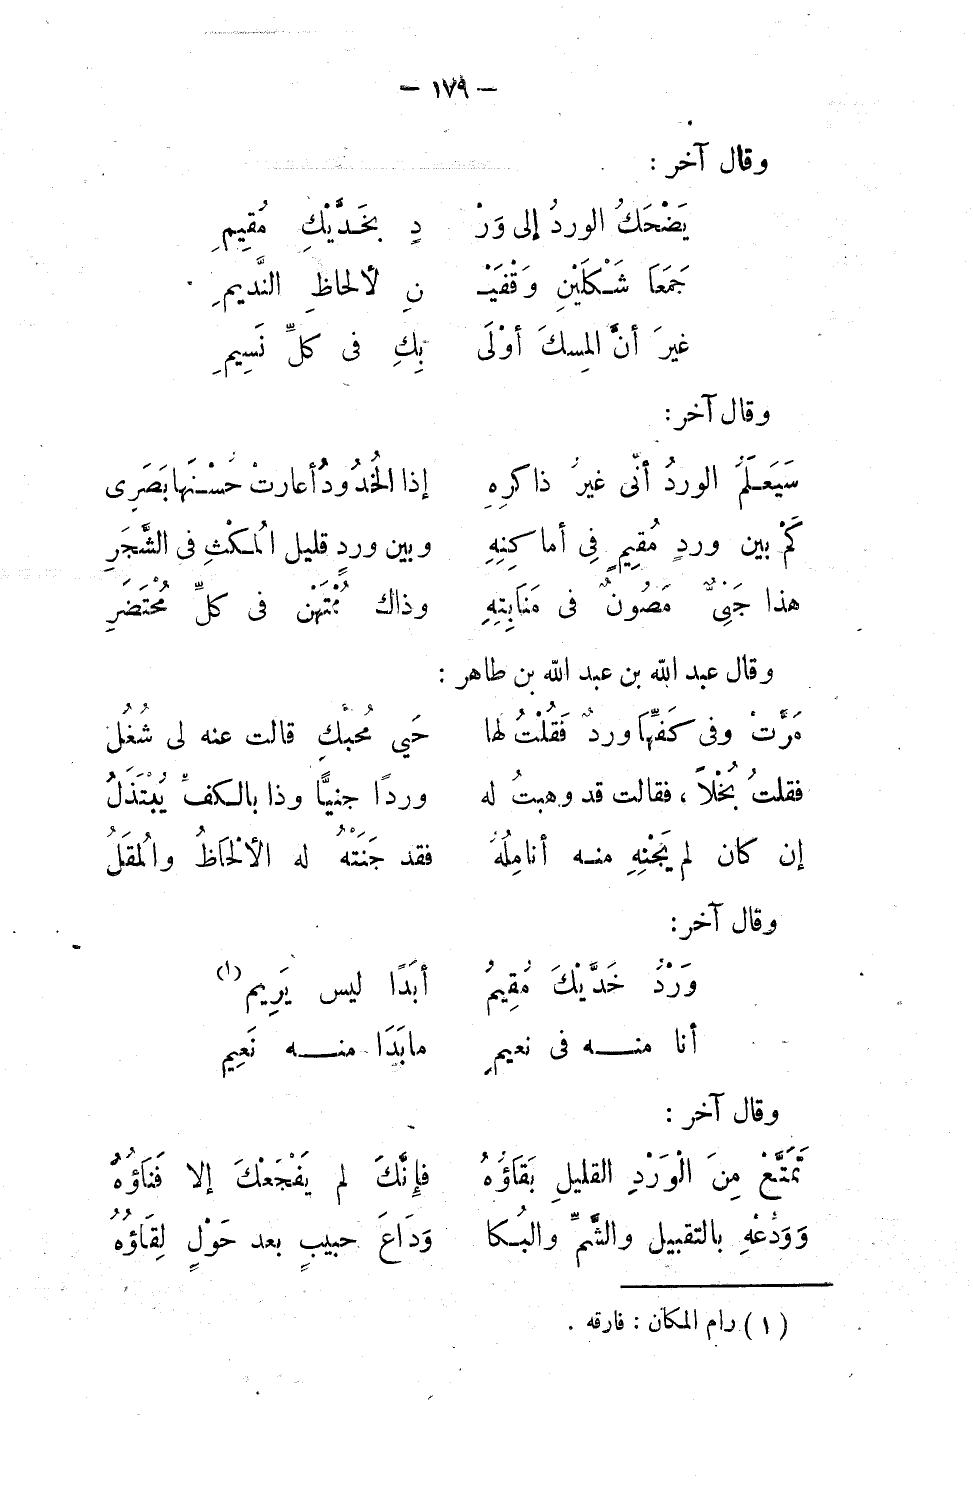 – ١٧٩ –
وقال آخر :
يَضْحَكُ الوردُ إلى وَرْ دٍ بخَدَّيْكِ مُقِيمِ
جَمَعَا شَكلَيْنِ وَقْفَيْـ نِ لألحاظِ النَّديمِ
غيرَ أنَّ المِسكَ أوْلَى بِكِ فى كلِّ نَسِيمِ
وقال آخر :
سَيَعلَمُ الوردُ أنّى غيرُ ذاكرِهِ إذا الخُدُودُ أعارتْ حُسْنَها بَصَرِى
كَمْ بين وردٍ مُقِيمٍ فِى أماكنِهِ وبين وردٍ قليل المكْثِ فى الشَّجَرِ
هذا جَنِىٌّ مَصُونٌ فى مَنَابِتِهِ وذاك مُمْتَهَنٌ فى كلِّ مُحْتَضَرِ
وقال عبد الله بن عبد الله بن طاهر :
مَرَّتْ وفى كَفِّها وردٌ فَقُلْتُ لها حَيِى مُحبكِ قالت عنه لى شُغُلُ
فقلتُ بُخْلاً ، فقالت قد وهبتُ له وردًا جنيًّا وذا بالكفِّ يُبْتَذَلُ
إن كان لم يَجْنِهِ منه أنامِلُهُ فقد جَنَتْهُ له الألْحَاظُ والمُقَلُ
وقال آخر :
وَرْدُ خَدَّيْكَ مُقِيمُ أبَدًا ليس يَرِيم (١)
أنا منه فى نعيمٍ مابَدَا منه نَعِيم
وقال آخر :
تَمَتَّعْ مِنَ الْوَرْدِ القليلِ بَقَاؤُهُ فإنَّكَ لم يَفْجَعْكَ إلا فَنَاؤُهُ
وَوَدِّعْهِ بالتقبيل والشَّمِّ والبُكا وَدَاعَ حبيبٍ بعد حَوْلٍ لِقَاؤُهُ
(١) رام المكان : فارقه .